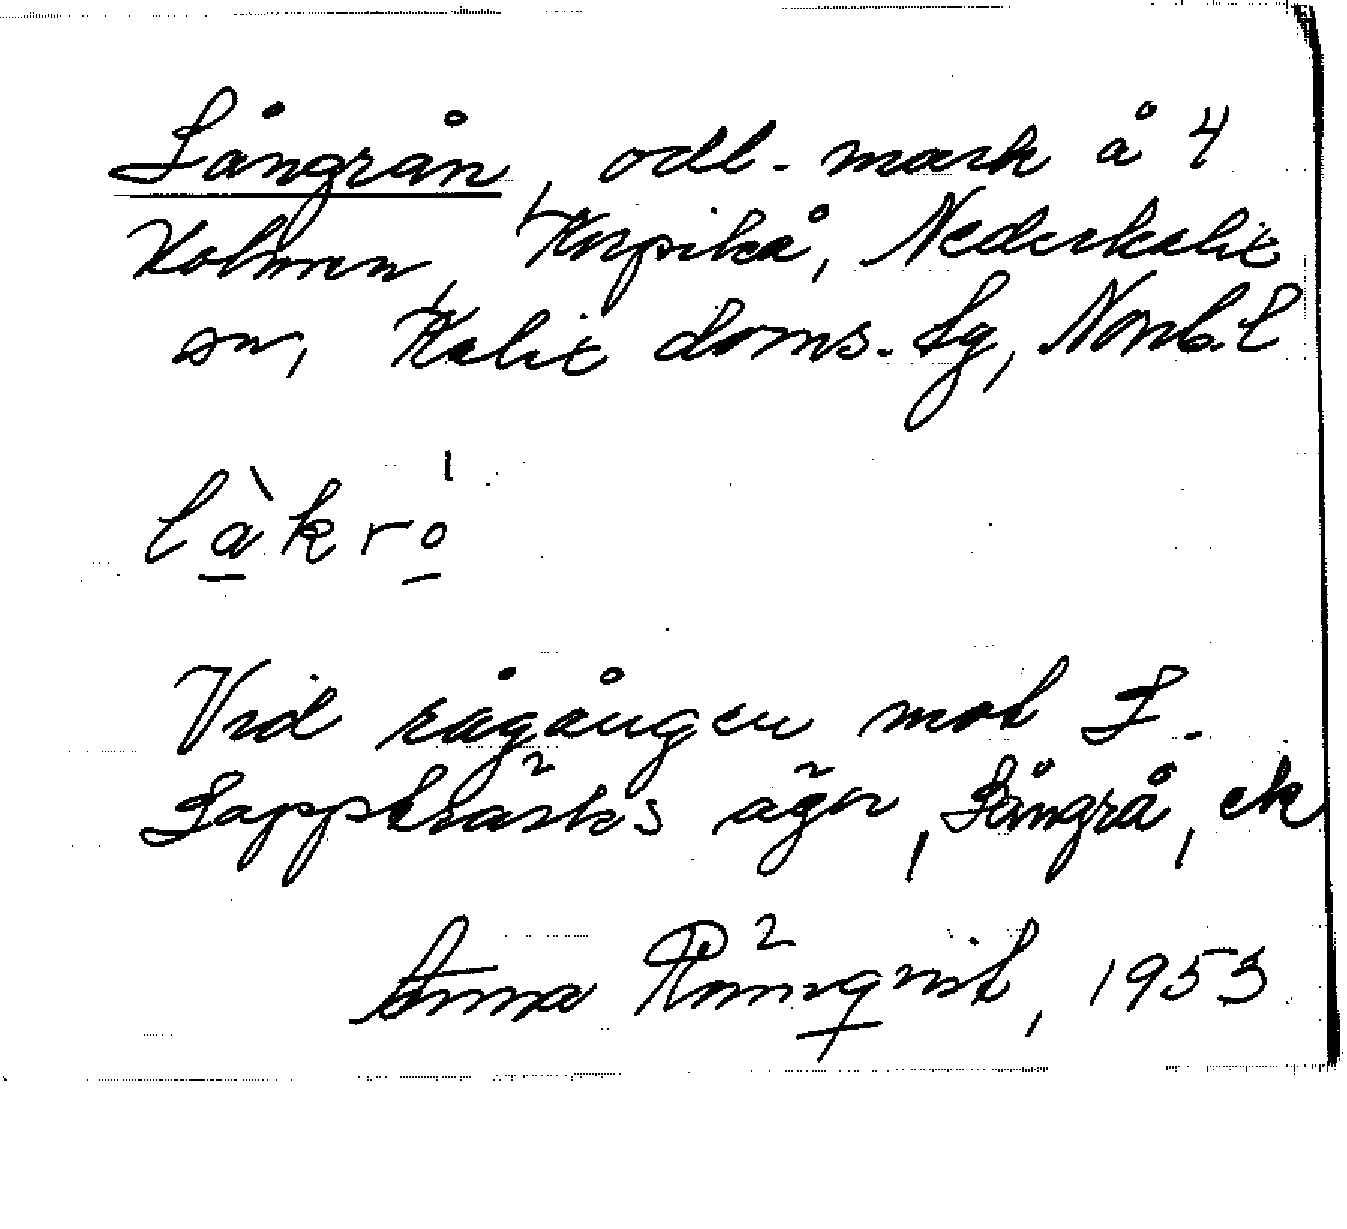 Långrån, odl. mark å 4
Kolmen, Korpikå, Nederkalix
sn, Kalix doms. lg, Norrb. l
låkro
Vid rågången mot L.
Lappträsks ägor, Långrå, ek
Anna Rönnqvist, 1953